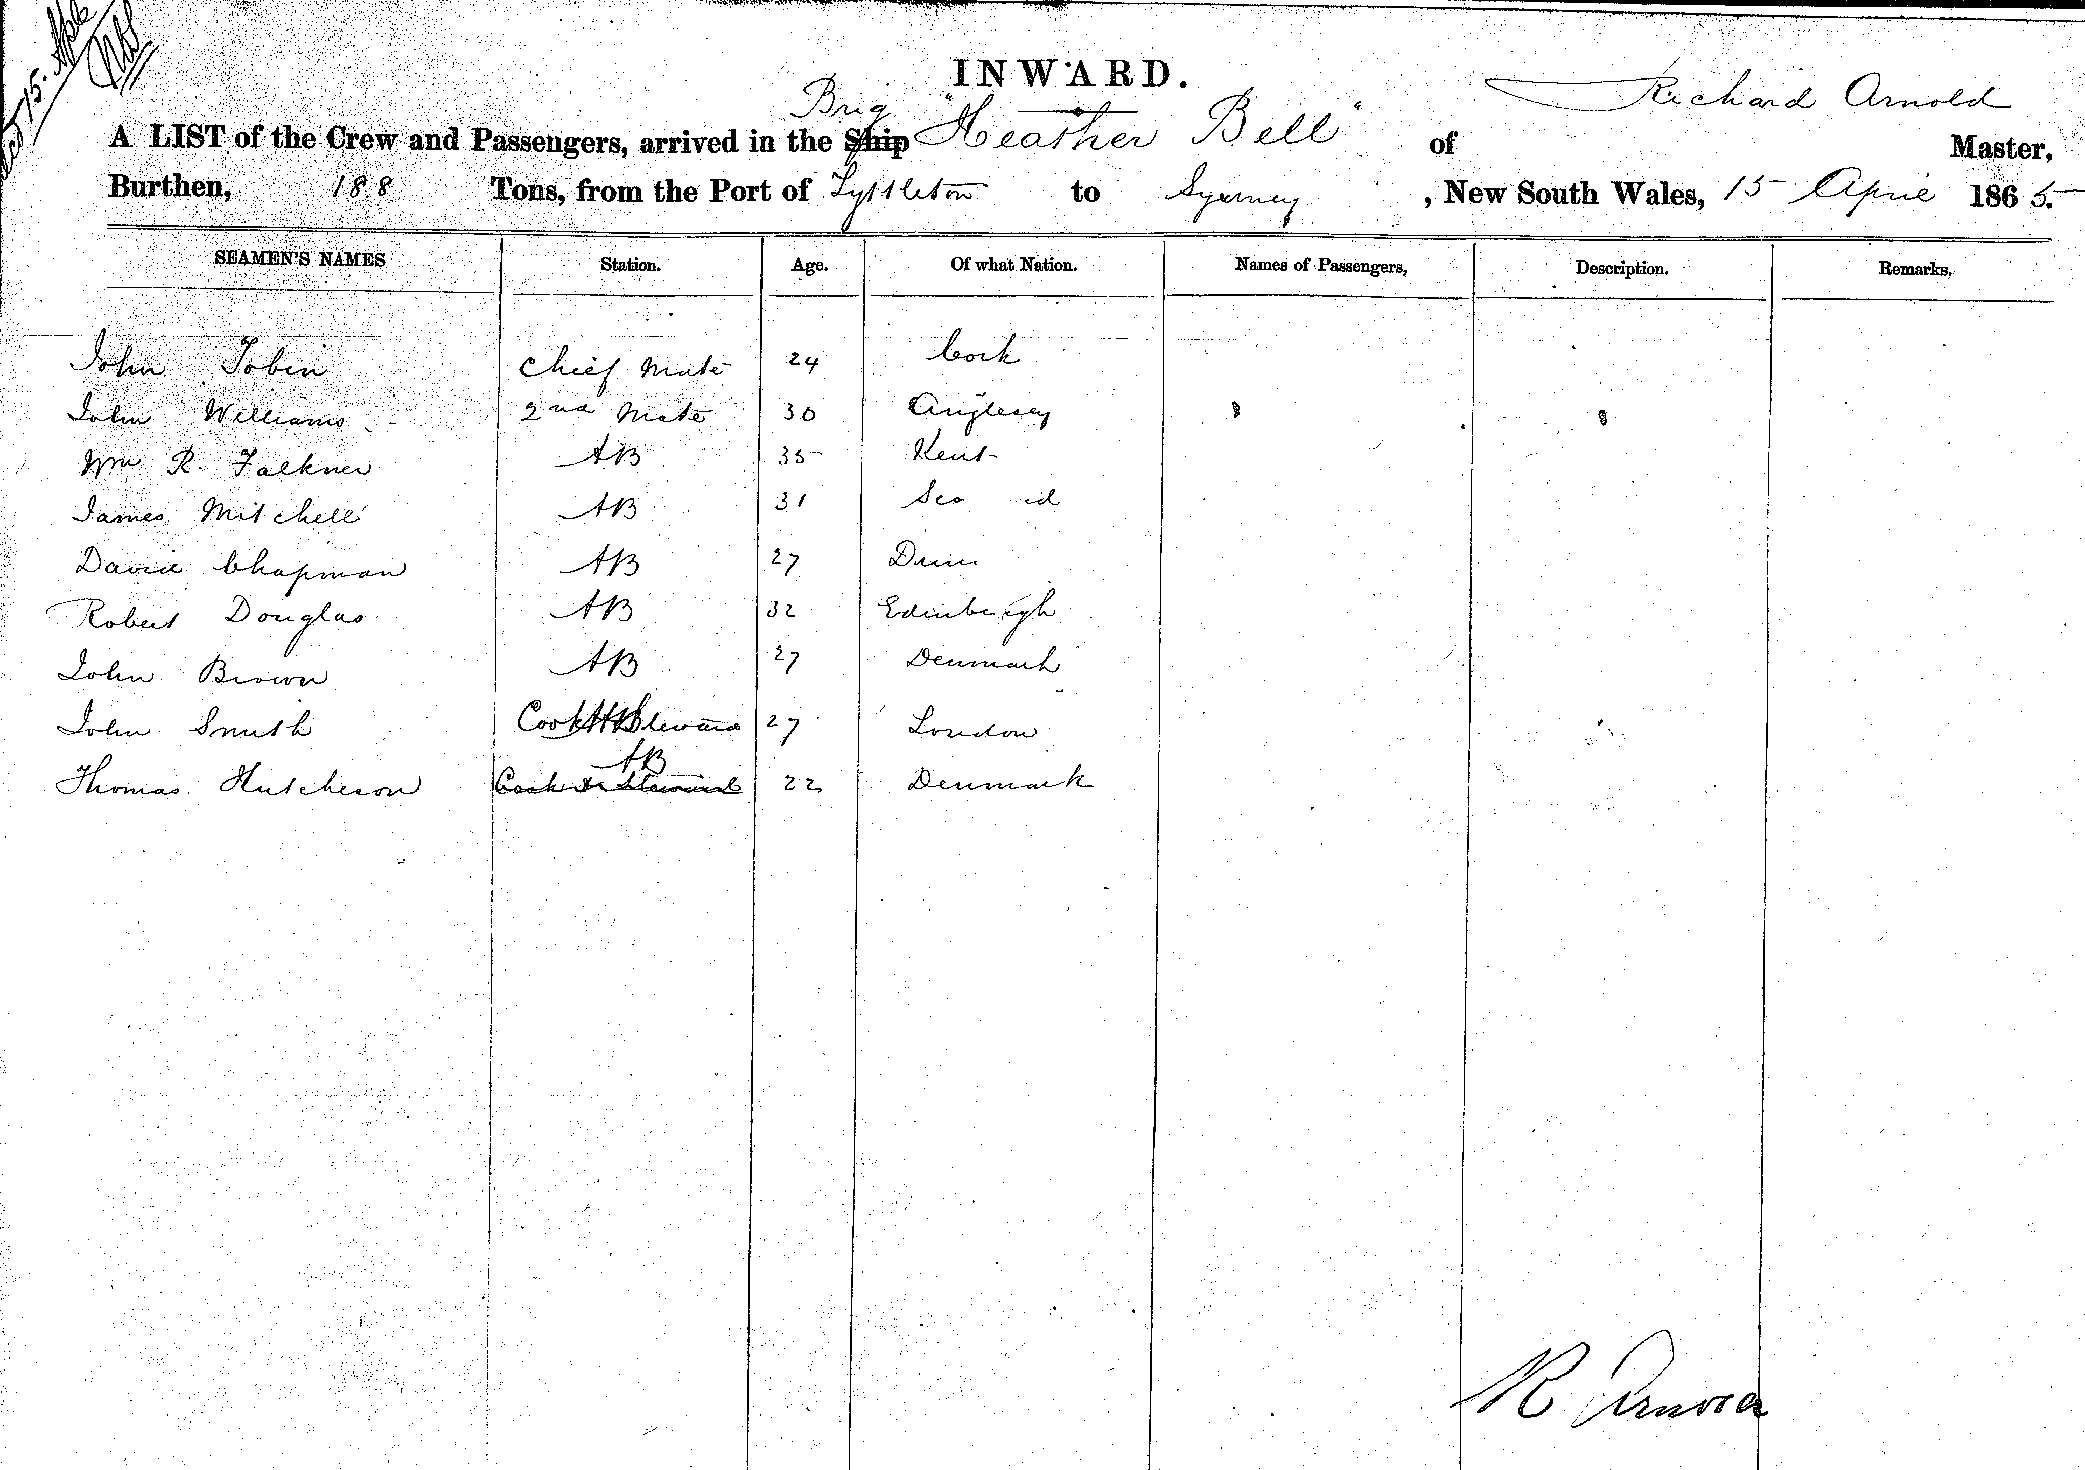 15. Apl
INWARD.
Brig Richard Arnold
A LIST of the Crew and Passengers, arrived in the Ship "Heather Bell" of Master,
Burthen, 188 Tons, from the Port of Lyttleton to Sydney, New South Wales, 15 April 1865.
SEAMEN'S NAMES Station. Age. Of what Nation. Names of Passengers, Description. Remarks,
John Tobin Chief Mate 24 Cork
John Williams 2nd Mate 30 Anglesey
Wm R. Falkner AB 35 Kent
James Mitchell AB 31
David Chapman AB 27
Robert Douglas AB 32 Edinburgh
John Brown AB 27 Denmark
John Smith Cook & Steward 27 London
AB
Thomas Hutcheson Cook & Steward 22 Denmark
R Arnold